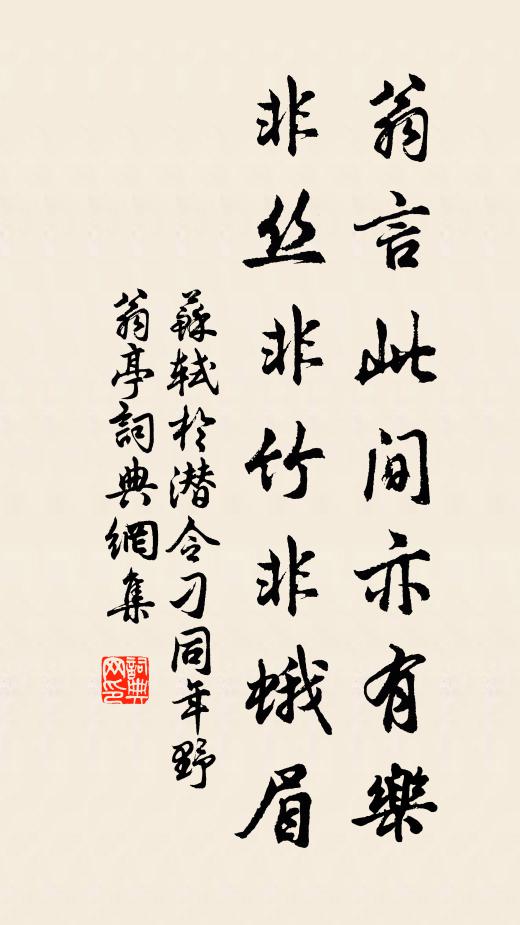 翁言此间亦有樂
非丝非竹非蛾眉
蘇轼於潜令刁同年野
翁亭詞典網集
詞典网印